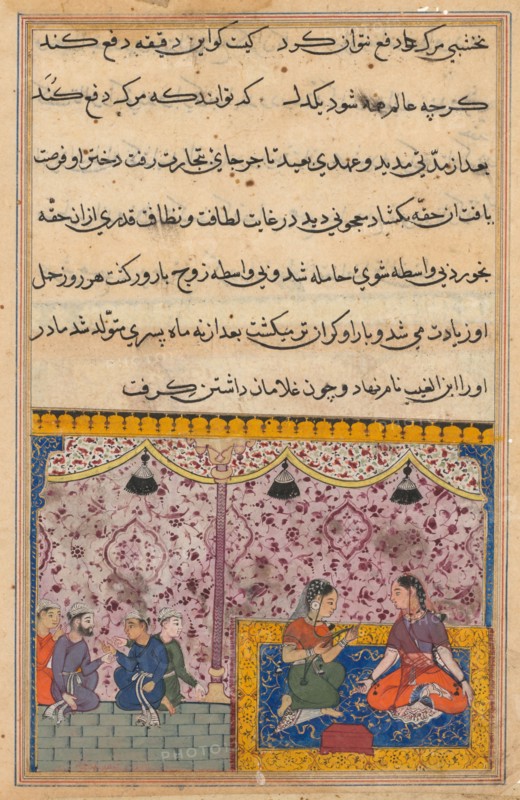 نخشبی مرک را دفع نتوان کرد کیت کو این دقیقه دفع کند
کرچه عالم همه شود یکدل که تواند که مرک دفع کند
بعد از مدّتی مدید و عهدی بعید تاجر جای بتجارت رفت دختر او فرصت
یافت ان حقّه بکشاد معجونی دید در غایت لطافت و نظافت قدری ازان حقّه
بخورد بی واسطه شوئ حامله شد و بی واسطه زوج بارور کشت هر روز حمل
او زیادت می شد و بار او کران تر میکشت بعد از نه ماه پسری متولّد شد مادر
او را ابن الغیب نام نهاد و چون غلامان داشتن کرفت